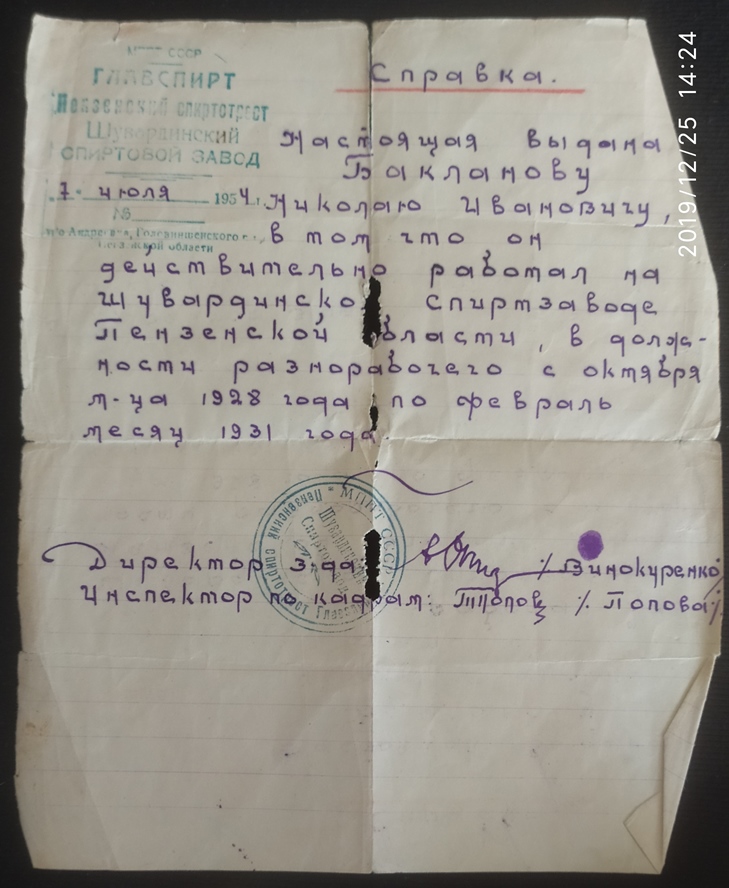 МППТ СССР
ГЛАВСПИРТ
Пензенский спиртотрест
Шувардинский
СПИРТОВОЙ ЗАВОД
"7" июля 1954 г.
№
Справка.
Настоящая выдана
Бакланову
Николаю Ивановичу,
в том что он
действительно работал на
Шувардинско спиртзаводе
Пензенской области, в долж-
ности разнорабочего с октября
м-ца 1928 года по февраль
месяц 1931 года.
Директор з-да: /Винокуренко/
Инспектор по кадрам: ТПопов /Попова/.
МППТ СССР * Пензенский спиртотрест Главспирт
Шувардинский
Спиртовой
2019/12/25 14:24